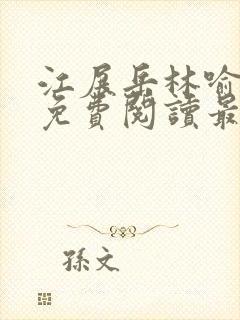 江展岳林喻
免費閱讀最
孫文